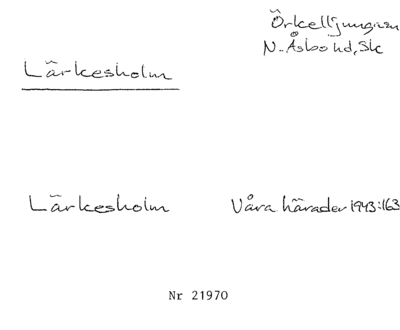 Örkelljungasn
N. Åsbo hd, Sk
Lärkesholm
Lärkesholm Våra härader 1943:163
Nr 21970